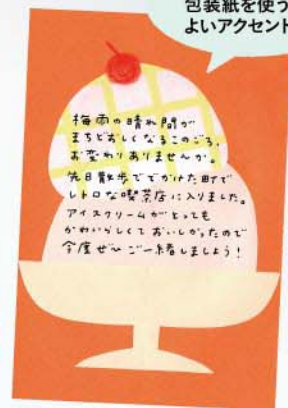 包装紙を使う
よいアクセント
梅雨の晴れ間が
まちどおしくなるこのごろ、
お変わりありませんか。
先日散歩ででかけた町で
レトロな喫茶店に入りました。
アイスクリームがとっても
かわいらしくておいしかったので
今度ぜひご一緒しましょう！